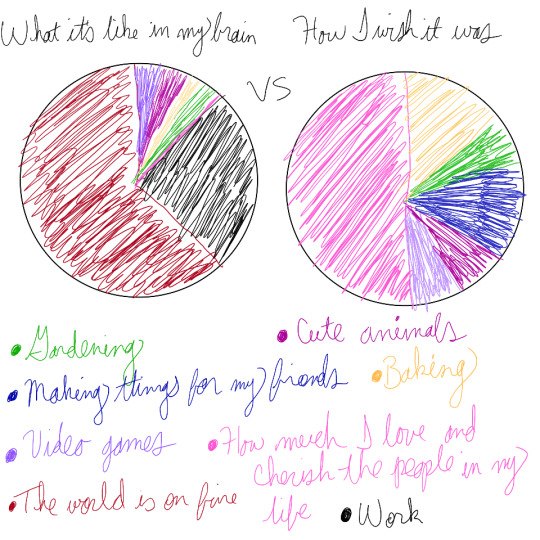 What it's like in my brain
How I wish it was
VS
• Gardening
• Cute animals
• Making things for my friends
• Baking
• Video games
• How much I love and
cherish the people in my
life
• The world is on fire
• Work